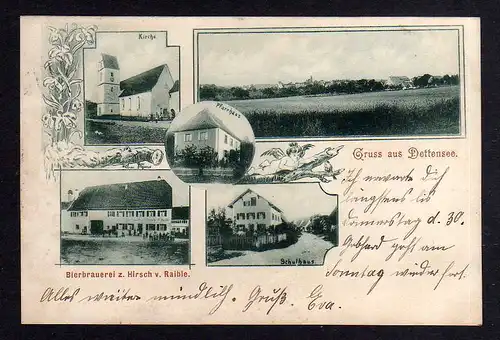 Kirche
Pfarrhaus
Gruss aus Dettensee.
Ich erwarte dich
längstens bis
donnerstag d. 30.
Gebhard geht am
Sonntag wieder fort.
Schulhaus.
Bierbrauerei z. Hirsch v. Raible.
Alles weitere mündlich. Gruß. Eva.